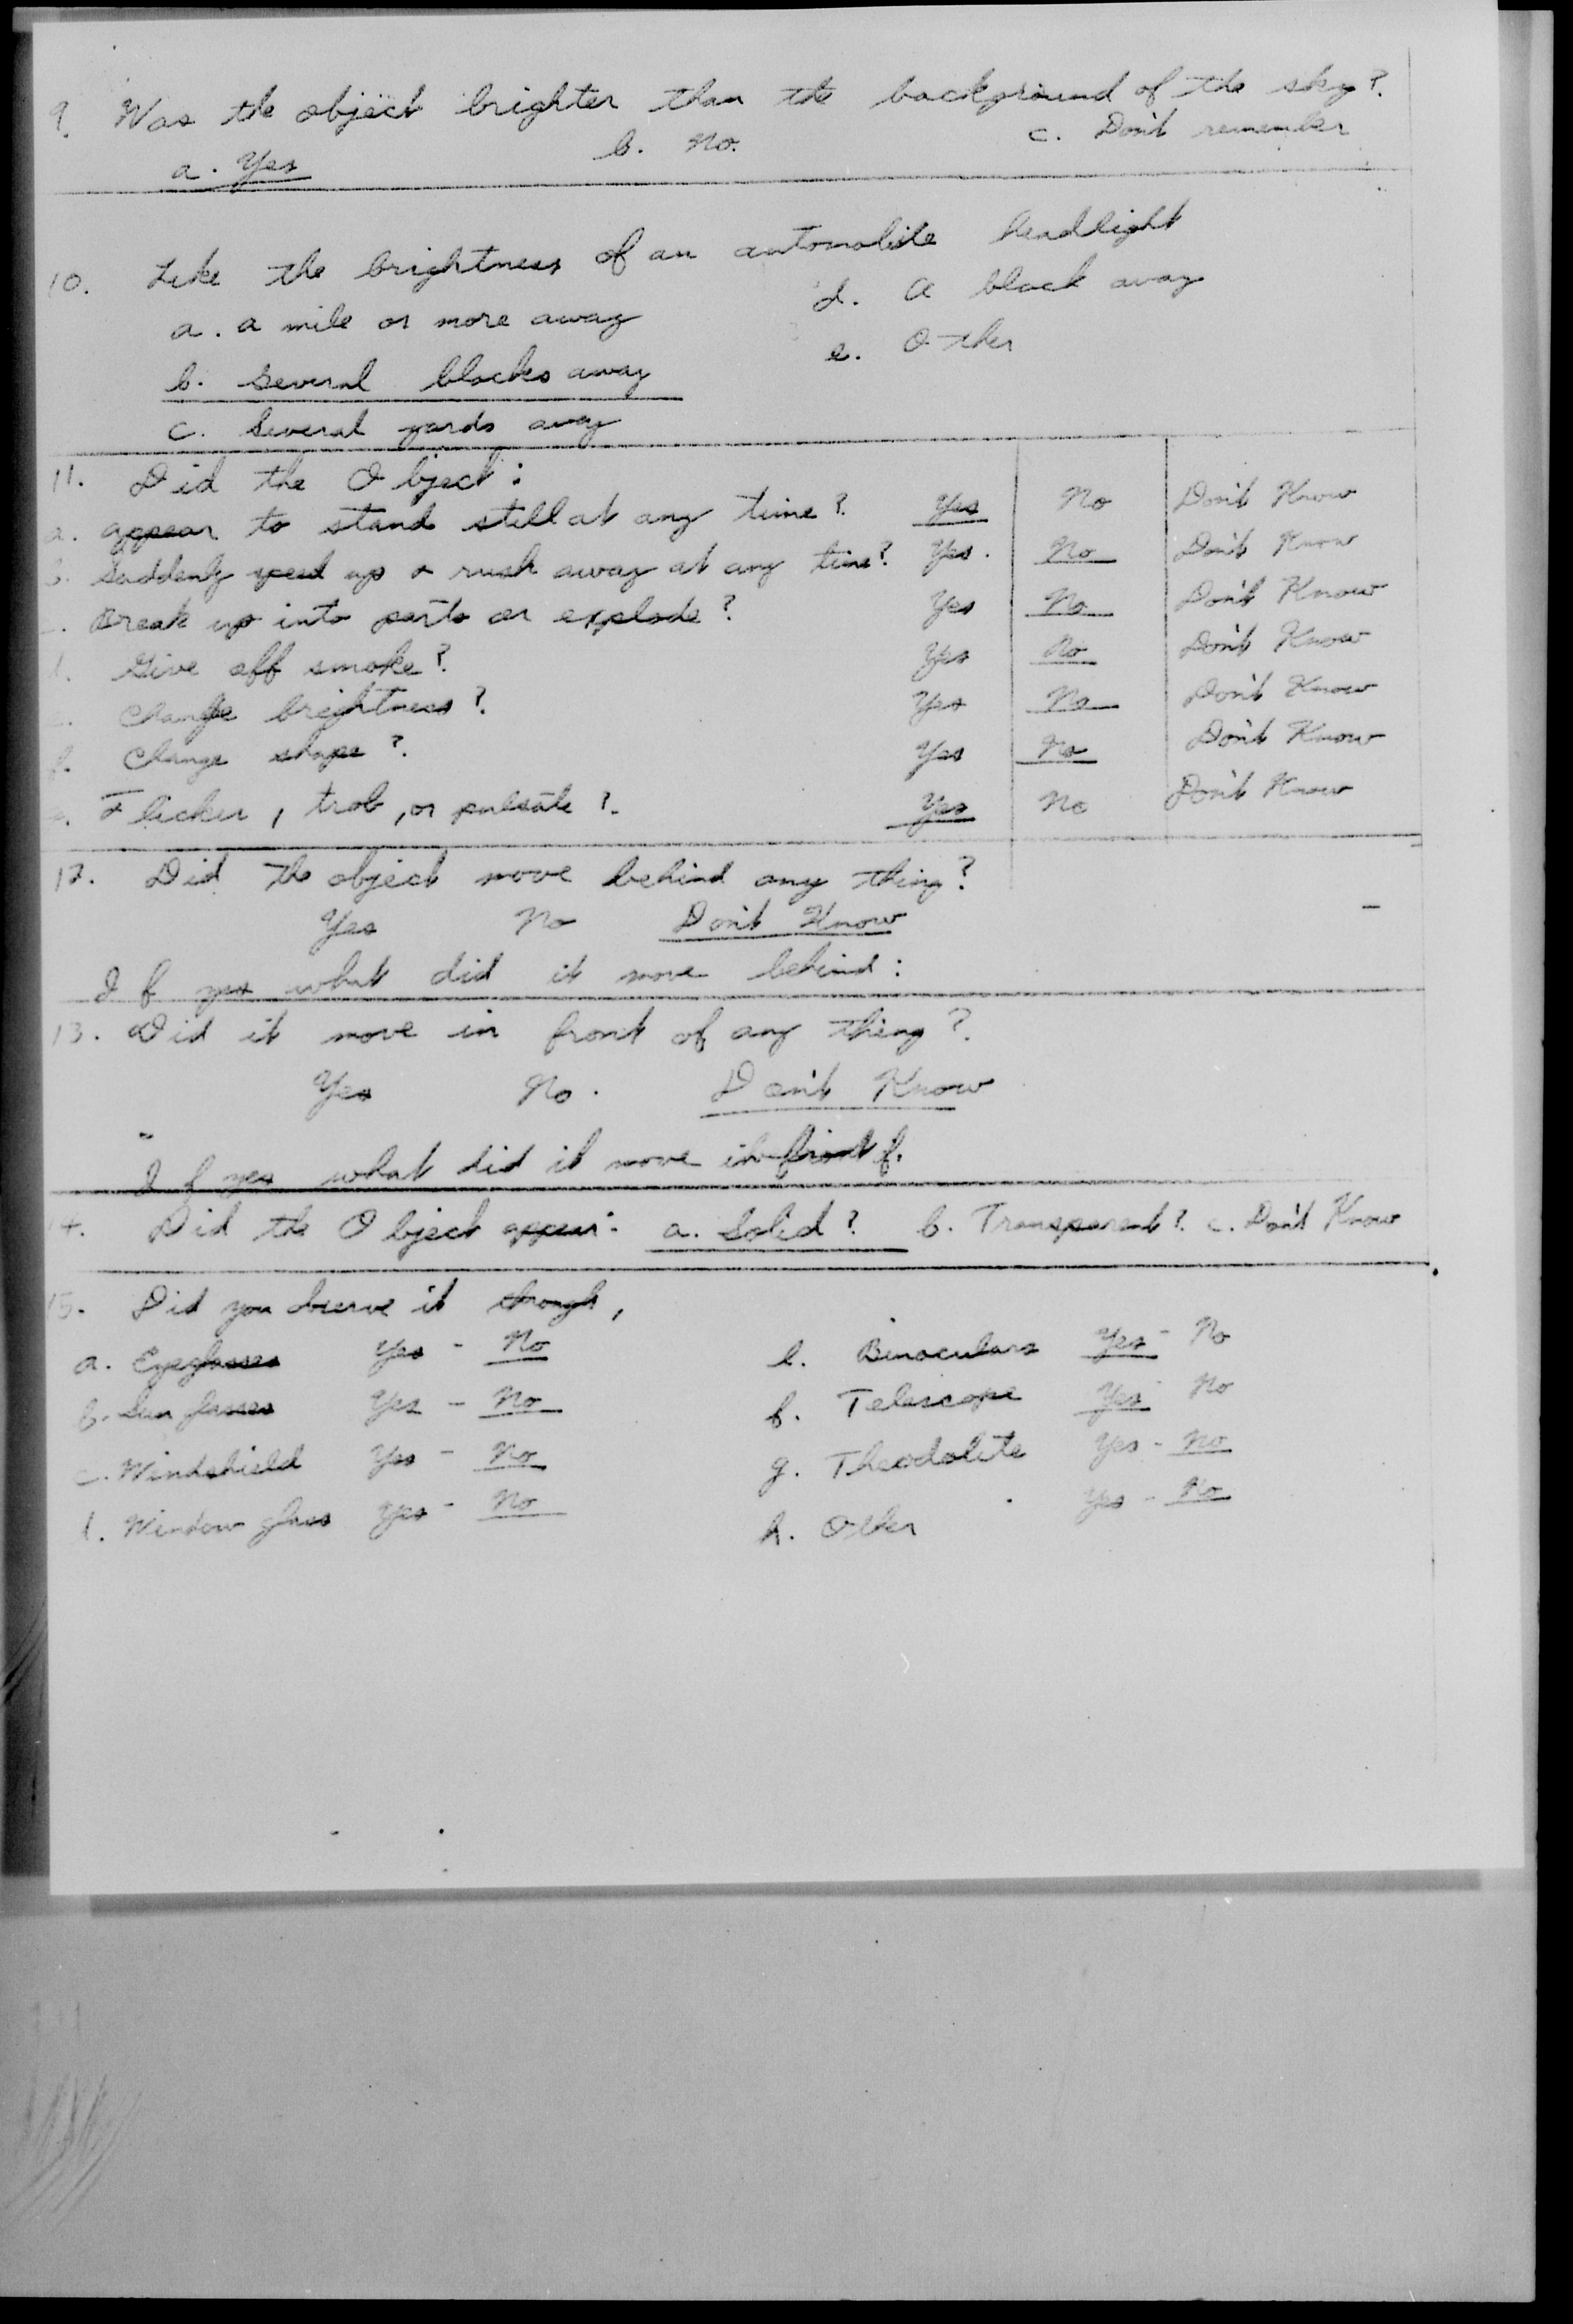 9. Was the object brighter than the background of the sky?
a. Yes b. No. c. Don't remember
10. Like the brightness of an automobile headlight
a. a mile or more away d. A block away
b. Several blocks away e. Other
c. Several yards away
11. Did the Object:
a. appear to stand still at any time? Yes No Don't Know
b. Suddenly speed up & rush away at any time? Yes. No Don't Know
Break up into parts or explode? Yes No Don't Know
d. Give off smoke? Yes No Don't Know
Change brightness? Yes No Don't Know
f. Change shape? Yes No Don't Know
Flicker, trob, or pulsate? Yes No Don't Know
12. Did the object move behind any thing?
Yes No Don't Know
If yes what did it move behind:
13. Did it move in front of any thing?
Yes No. Don't Know
If yes what did it move in front of.
14. Did the Object appear: a. Solid? b. Transparent? c. Don't Know
15. Did you observe it through,
a. Eyeglasses Yes - No e. Binoculars Yes - No
b. Sun glasses Yes - No f. Telescope Yes No
c. Windshield Yes - No g. Theodolite Yes - No
d. Window glass Yes - No h. Other Yes - No